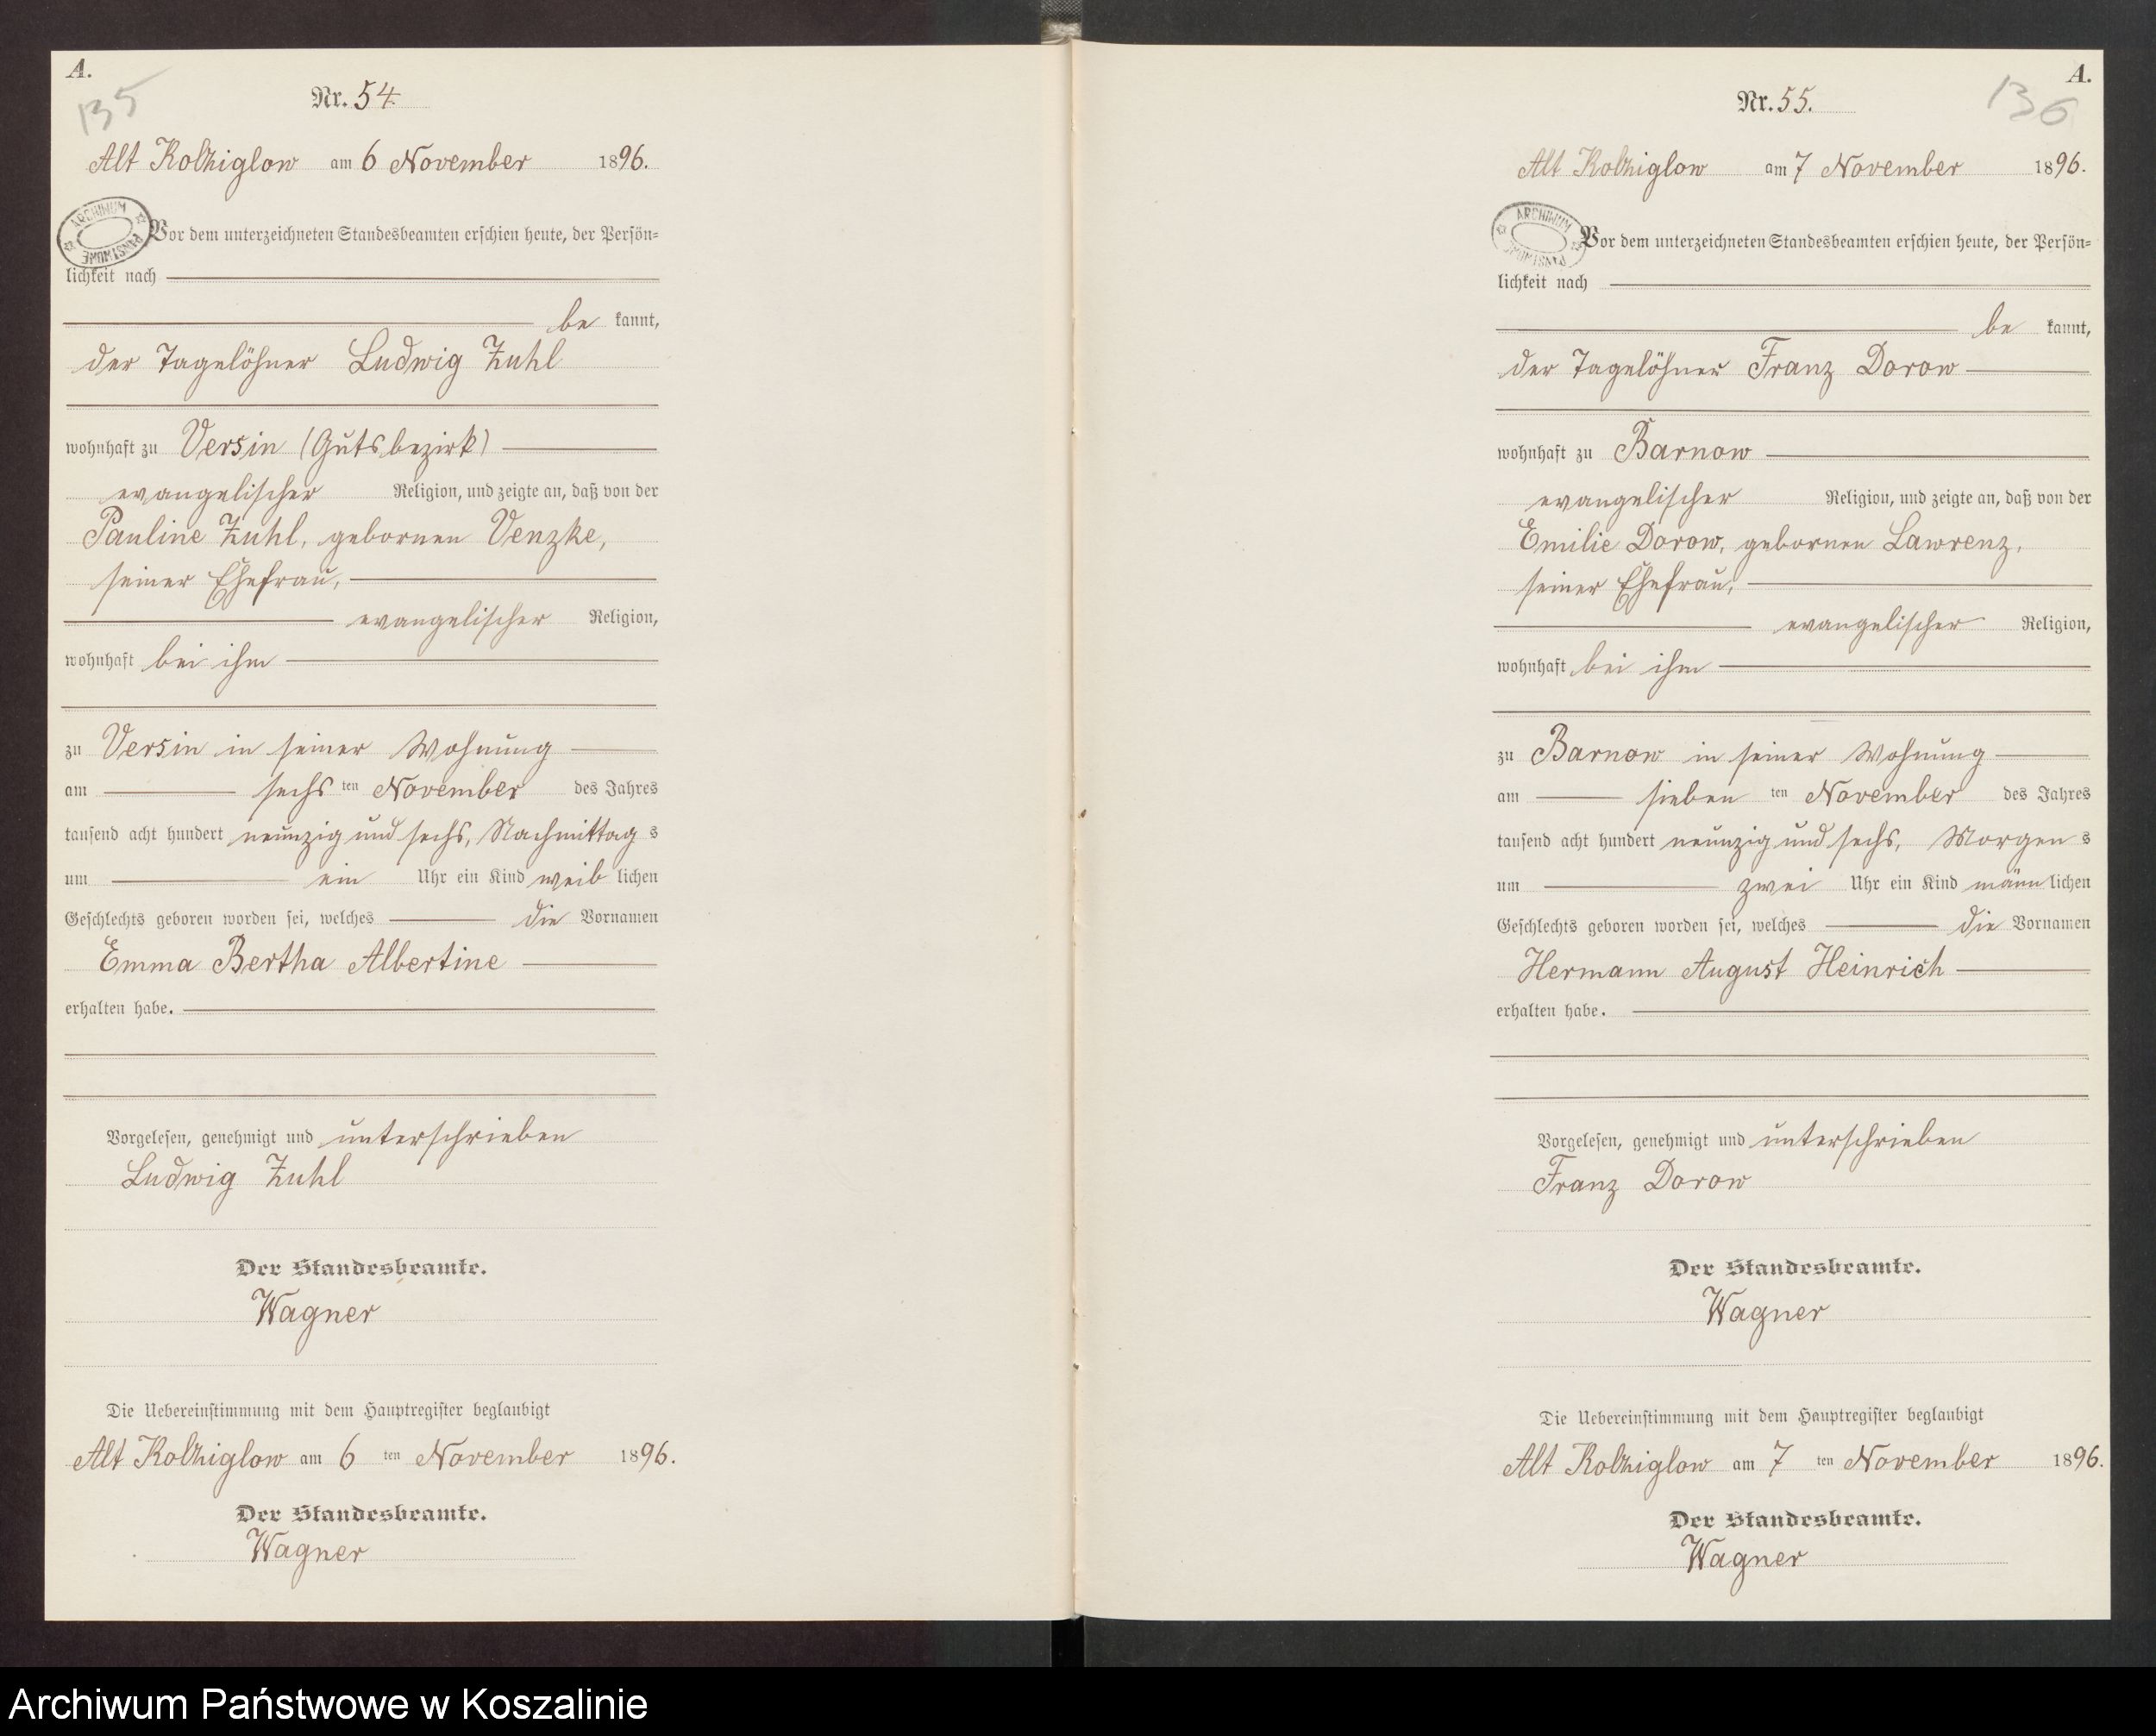 A.
135
Nr. 54.
Alt Kolziglow am 6 November 1896.
ARCHIWUM PAŃSTWOWE
Vor dem unterzeichneten Standesbeamten erschien heute, der Persön=
lichkeit nach
be kannt,
der Tagelöhner Ludwig Zuhl
wohnhaft zu Versin (Gutsbezirk)
evangelischer Religion, und zeigte an, daß von der
Pauline Zuhl, gebornen Venzke,
seiner Ehefrau,
evangelischer Religion,
wohnhaft bei ihm
zu Versin in seiner Wohnung
am sechs ten November des Jahres
tausend acht hundert neunzig und sechs, Nachmittag s
um ein Uhr ein Kind weib lichen
Geschlechts geboren worden sei, welches die Vornamen
Emma Bertha Albertine
erhalten habe.
Vorgelesen, genehmigt und unterschrieben
Ludwig Zuhl
Der Standesbeamte.
Wagner
Die Uebereinstimmung mit dem Hauptregister beglaubigt
Alt Kolziglow am 6 ten November 1896.
Der Standesbeamte.
Wagner
A.
136
Nr. 55.
Alt Kolziglow am 7 November 1896.
ARCHIWUM PAŃSTWOWE
Vor dem unterzeichneten Standesbeamten erschien heute, der Persön=
lichkeit nach
be kannt,
der Tagelöhner Franz Dorow
wohnhaft zu Barnow
evangelischer Religion, und zeigte an, daß von der
Emilie Dorow, gebornen Lawrenz,
seiner Ehefrau,
evangelischer Religion,
wohnhaft bei ihm
zu Barnow in seiner Wohnung
am sieben ten November des Jahres
tausend acht hundert neunzig und sechs, Morgen s
um zwei Uhr ein Kind männ lichen
Geschlechts geboren worden sei, welches die Vornamen
Hermann August Heinrich
erhalten habe.
Vorgelesen, genehmigt und unterschrieben
Franz Dorow
Der Standesbeamte.
Wagner
Die Uebereinstimmung mit dem Hauptregister beglaubigt
Alt Kolziglow am 7 ten November 1896.
Der Standesbeamte.
Wagner
Archiwum Państwowe w Koszalinie